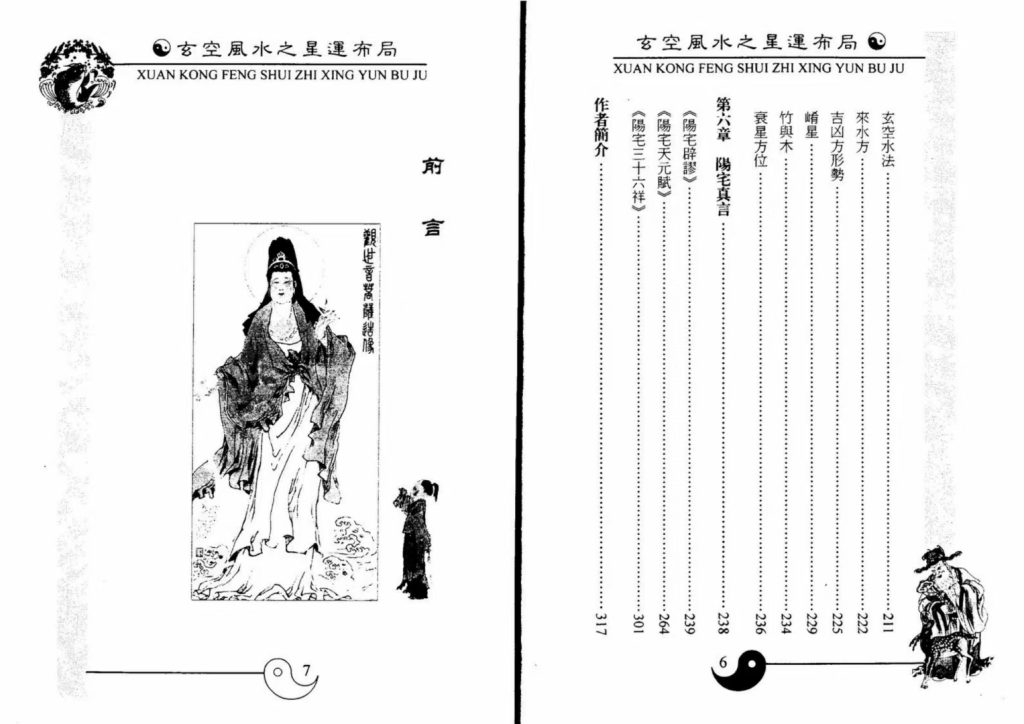 玄空風水之星運布局
XUAN KONG FENG SHUI ZHI XING YUN BU JU
玄空水法 211
來水方 222
吉凶方形勢 225
崤星 229
竹與木 234
衰星方位 236
第六章 陽宅真言 238
《陽宅辟謬》 239
《陽宅天元賦》 264
《陽宅三十六祥》 301
作者簡介 317
6
玄空風水之星運布局
XUAN KONG FENG SHUI ZHI XING YUN BU JU
前言
觀世音菩薩
7